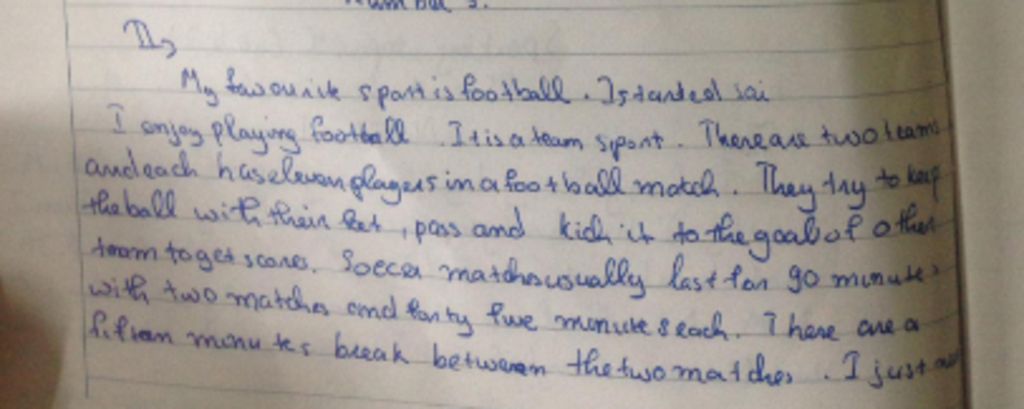 II,
My favourite sport is football. I started sai
I enjoy playing football. It is a team sport. There are two teams
and each has eleven players in a football match. They try to keep
the ball with their feet, pass and kick it to the goal of other
team to get scores. Soccer matches usually last for 90 minutes
with two matches and forty five minutes each. There are a
fifteen minutes break between the two matches. I just